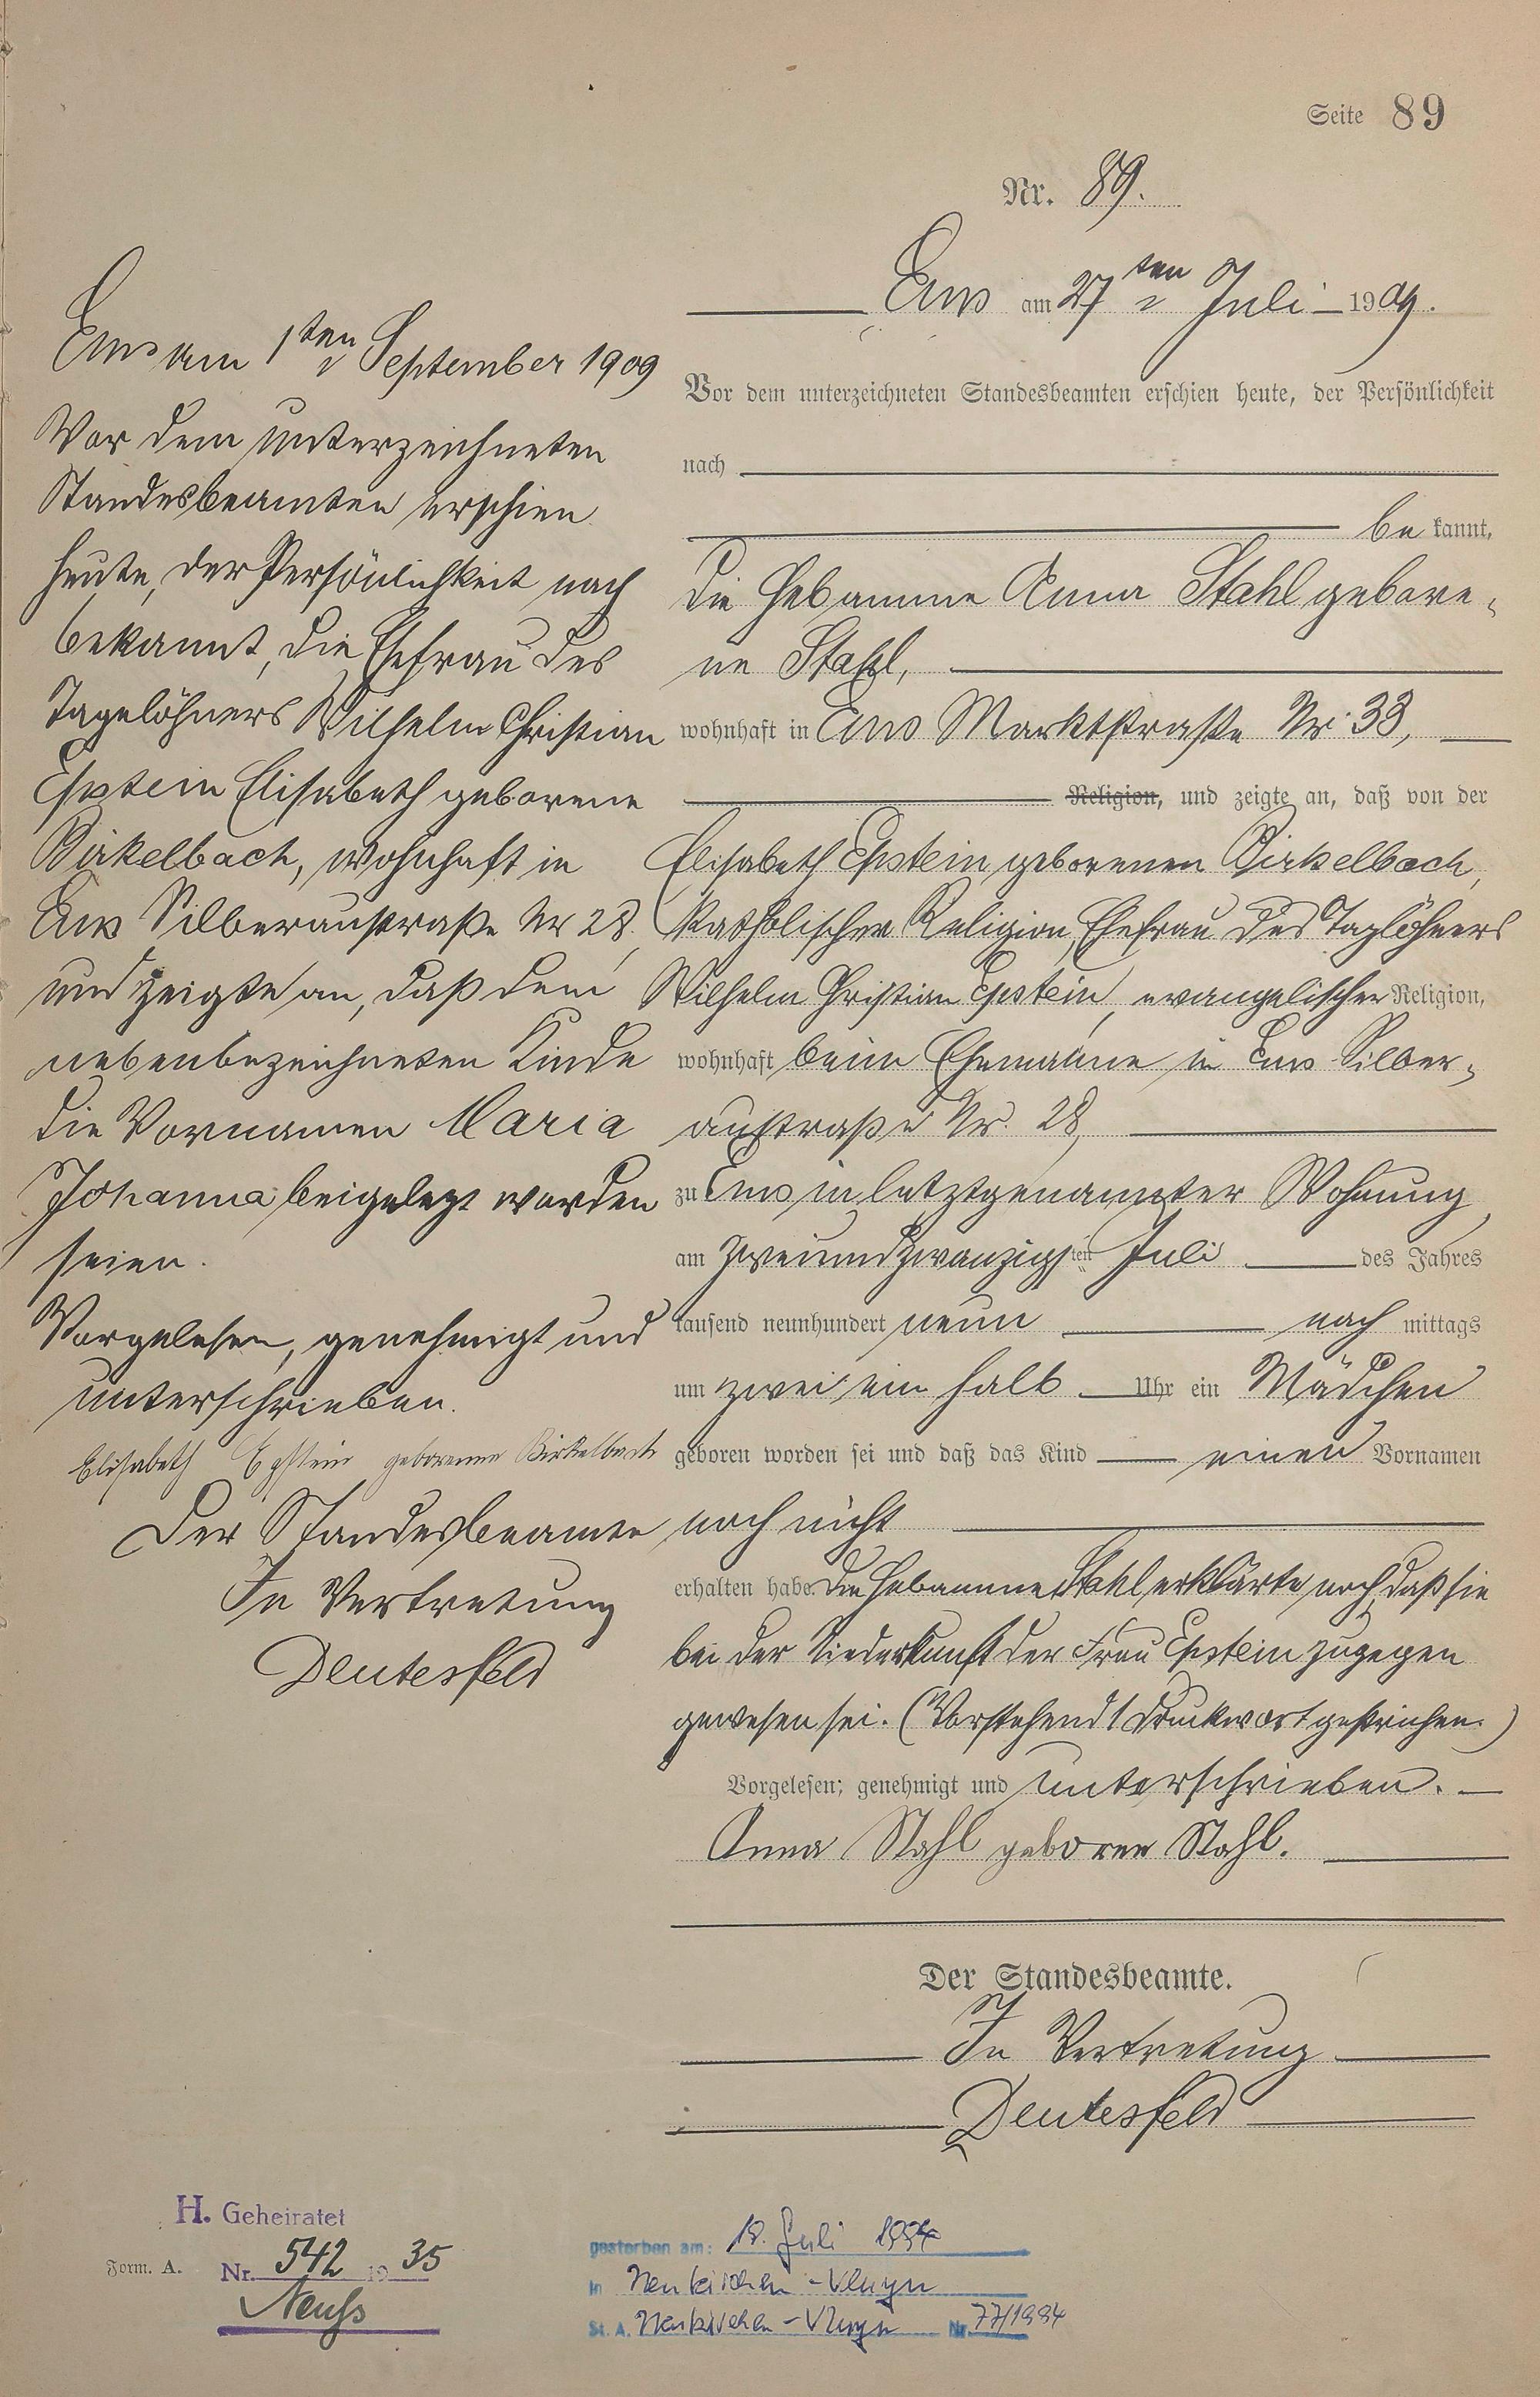 Seite 89
Nr. 89.
Ems am 27ten Juli 1909.
Vor dem unterzeichneten Standesbeamten erschien heute, der Persönlichkeit
nach
be kannt,
die Hebamme Anna Stahl gebore-
ne Stahl,
wohnhaft in Ems Marktstraße Nr. 33,
Religion, und zeigte an, daß von der
Elisabeth Epstein geborenen Birkelbach,
katholischer Religion, Ehefrau des Taglöhners
Wilhelm Christian Epstein, evangelischer Religion,
wohnhaft beim Ehemanne in Ems Silber-
austraße Nr. 28,
zu Ems in letztgenannter Wohnung,
am zweiundzwanzigsten Juli des Jahres
tausend neunhundert neun nach mittags
um zwei ein halb Uhr ein Mädchen
geboren worden sei und daß das Kind einen Vornamen
noch nicht
erhalten habe. Die Hebamme Stahl erklärte noch, daß sie
bei der Niederkunft der Frau Epstein zugegen
gewesen sei. (Vorstehend 1 Druckwort gestrichen.)
Vorgelesen, genehmigt und unterschrieben.
Anna Stahl geborene Stahl.
Der Standesbeamte.
In Vertretung
Deutesfeld
Ems am 1ten September 1909
Vor dem unterzeichneten
Standesbeamten erschien
heute, der Persönlichkeit nach
bekannt, die Ehefrau des
Tagelöhners Wilhelm Christian
Epstein Elisabeth geborene
Birkelbach, wohnhaft in
Ems Silberaustraße Nr 28,
und zeigte an, daß dem
nebenbezeichneten Kinde
die Vornamen Maria
Johanna beigelegt worden
seien.
Vorgelesen, genehmigt und
unterschrieben.
Elisabeth Epstein geborenne Birkelbach
Der Standesbeamte
In Vertretung
Deutesfeld
H. Geheiratet
Form. A. Nr. 542 1935
Neuss
gestorben am: 18. Juli 1994
in Neukirchen-Vluyn
St. A. Neukirchen-Vluyn Nr. 77/1994